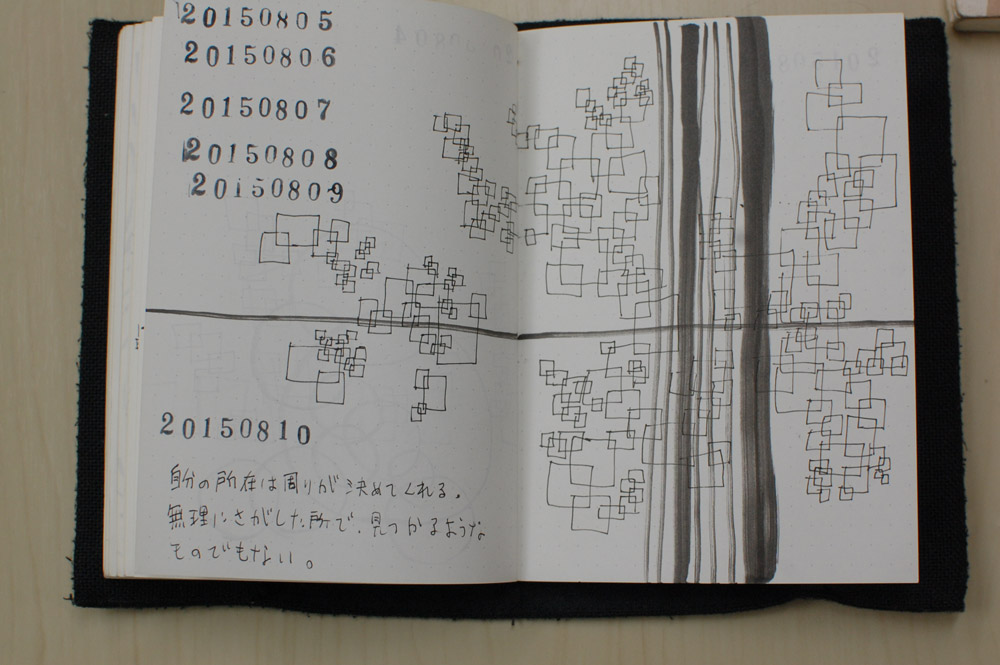 20150805
20150806
20150807
20150808
20150809
20150810
自分の所在は周りが決めてくれる。
無理にさがした所で、見つかるような
ものでもない。